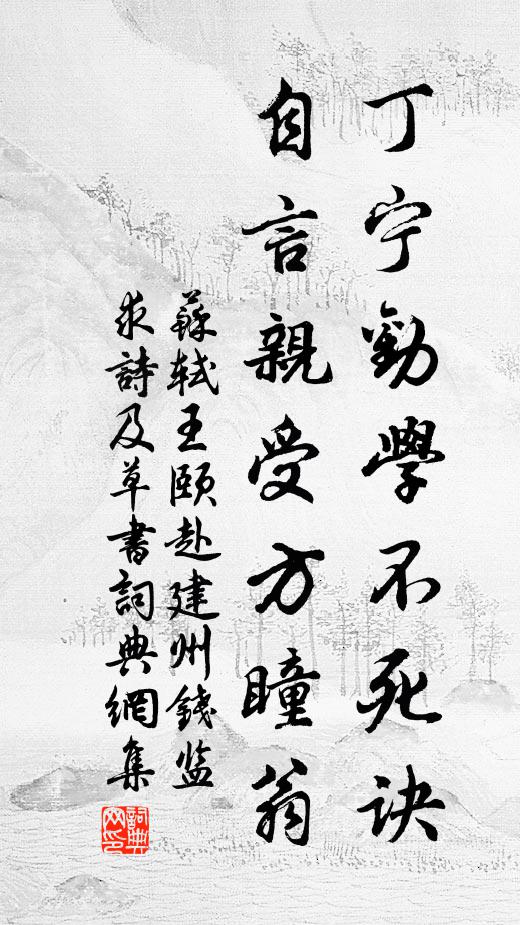 丁宁勸學不死诀
自言親受方瞳翁
蘇轼王颐赴建州錢监
求詩及草書詞典網集
詞典网印